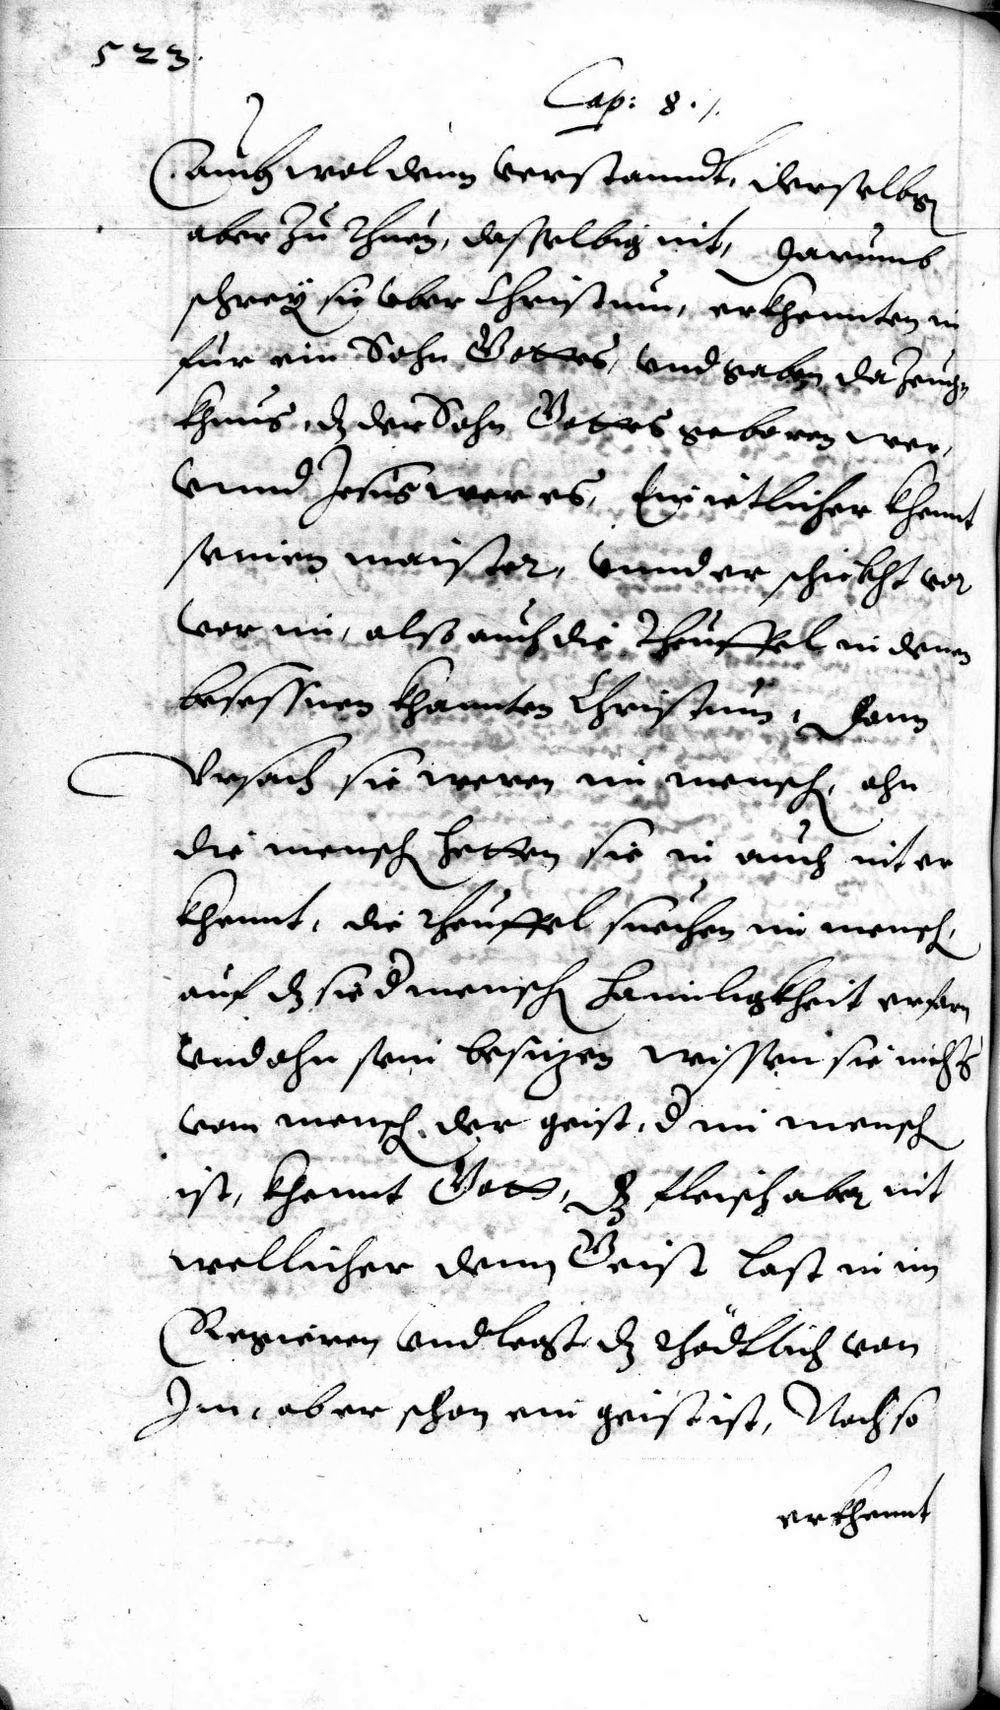 523.
Cap: 8 ./.
auch wol denn verstanndt, derselben
aber zu thuen, dasselbig nit, Darumb
schrey sie vber Christum, erkhennten in
für ein Sohn Gottes, vnd gaben da Zeuch
khnus, dz der Sohn Gottes geboren wer,
vnnd Jesus wer es, Ein ietlicher khennt
seinen maister, vnnd er schickht vor
vor im, also auch die Theuffel in denen
besessnen khannten Christum, Dann
Vrsach sie weren im mensch, ohn
die mensch hetten sie in auch nit er
khennt, die Theuffel suechen im mensch,
auf dz sie d mensch haimligkheit erfarn
vnd ohn sein besitzen wissen sie nichts
vom mensch, der geist, d im mensch
ist, khennt Gott, Dz fleisch aber nit
wellicher denn Geist last in im
Regieren vnd legt dz thödtlich von
Im, aber schon ein geist ist, Noch so
erkhennt